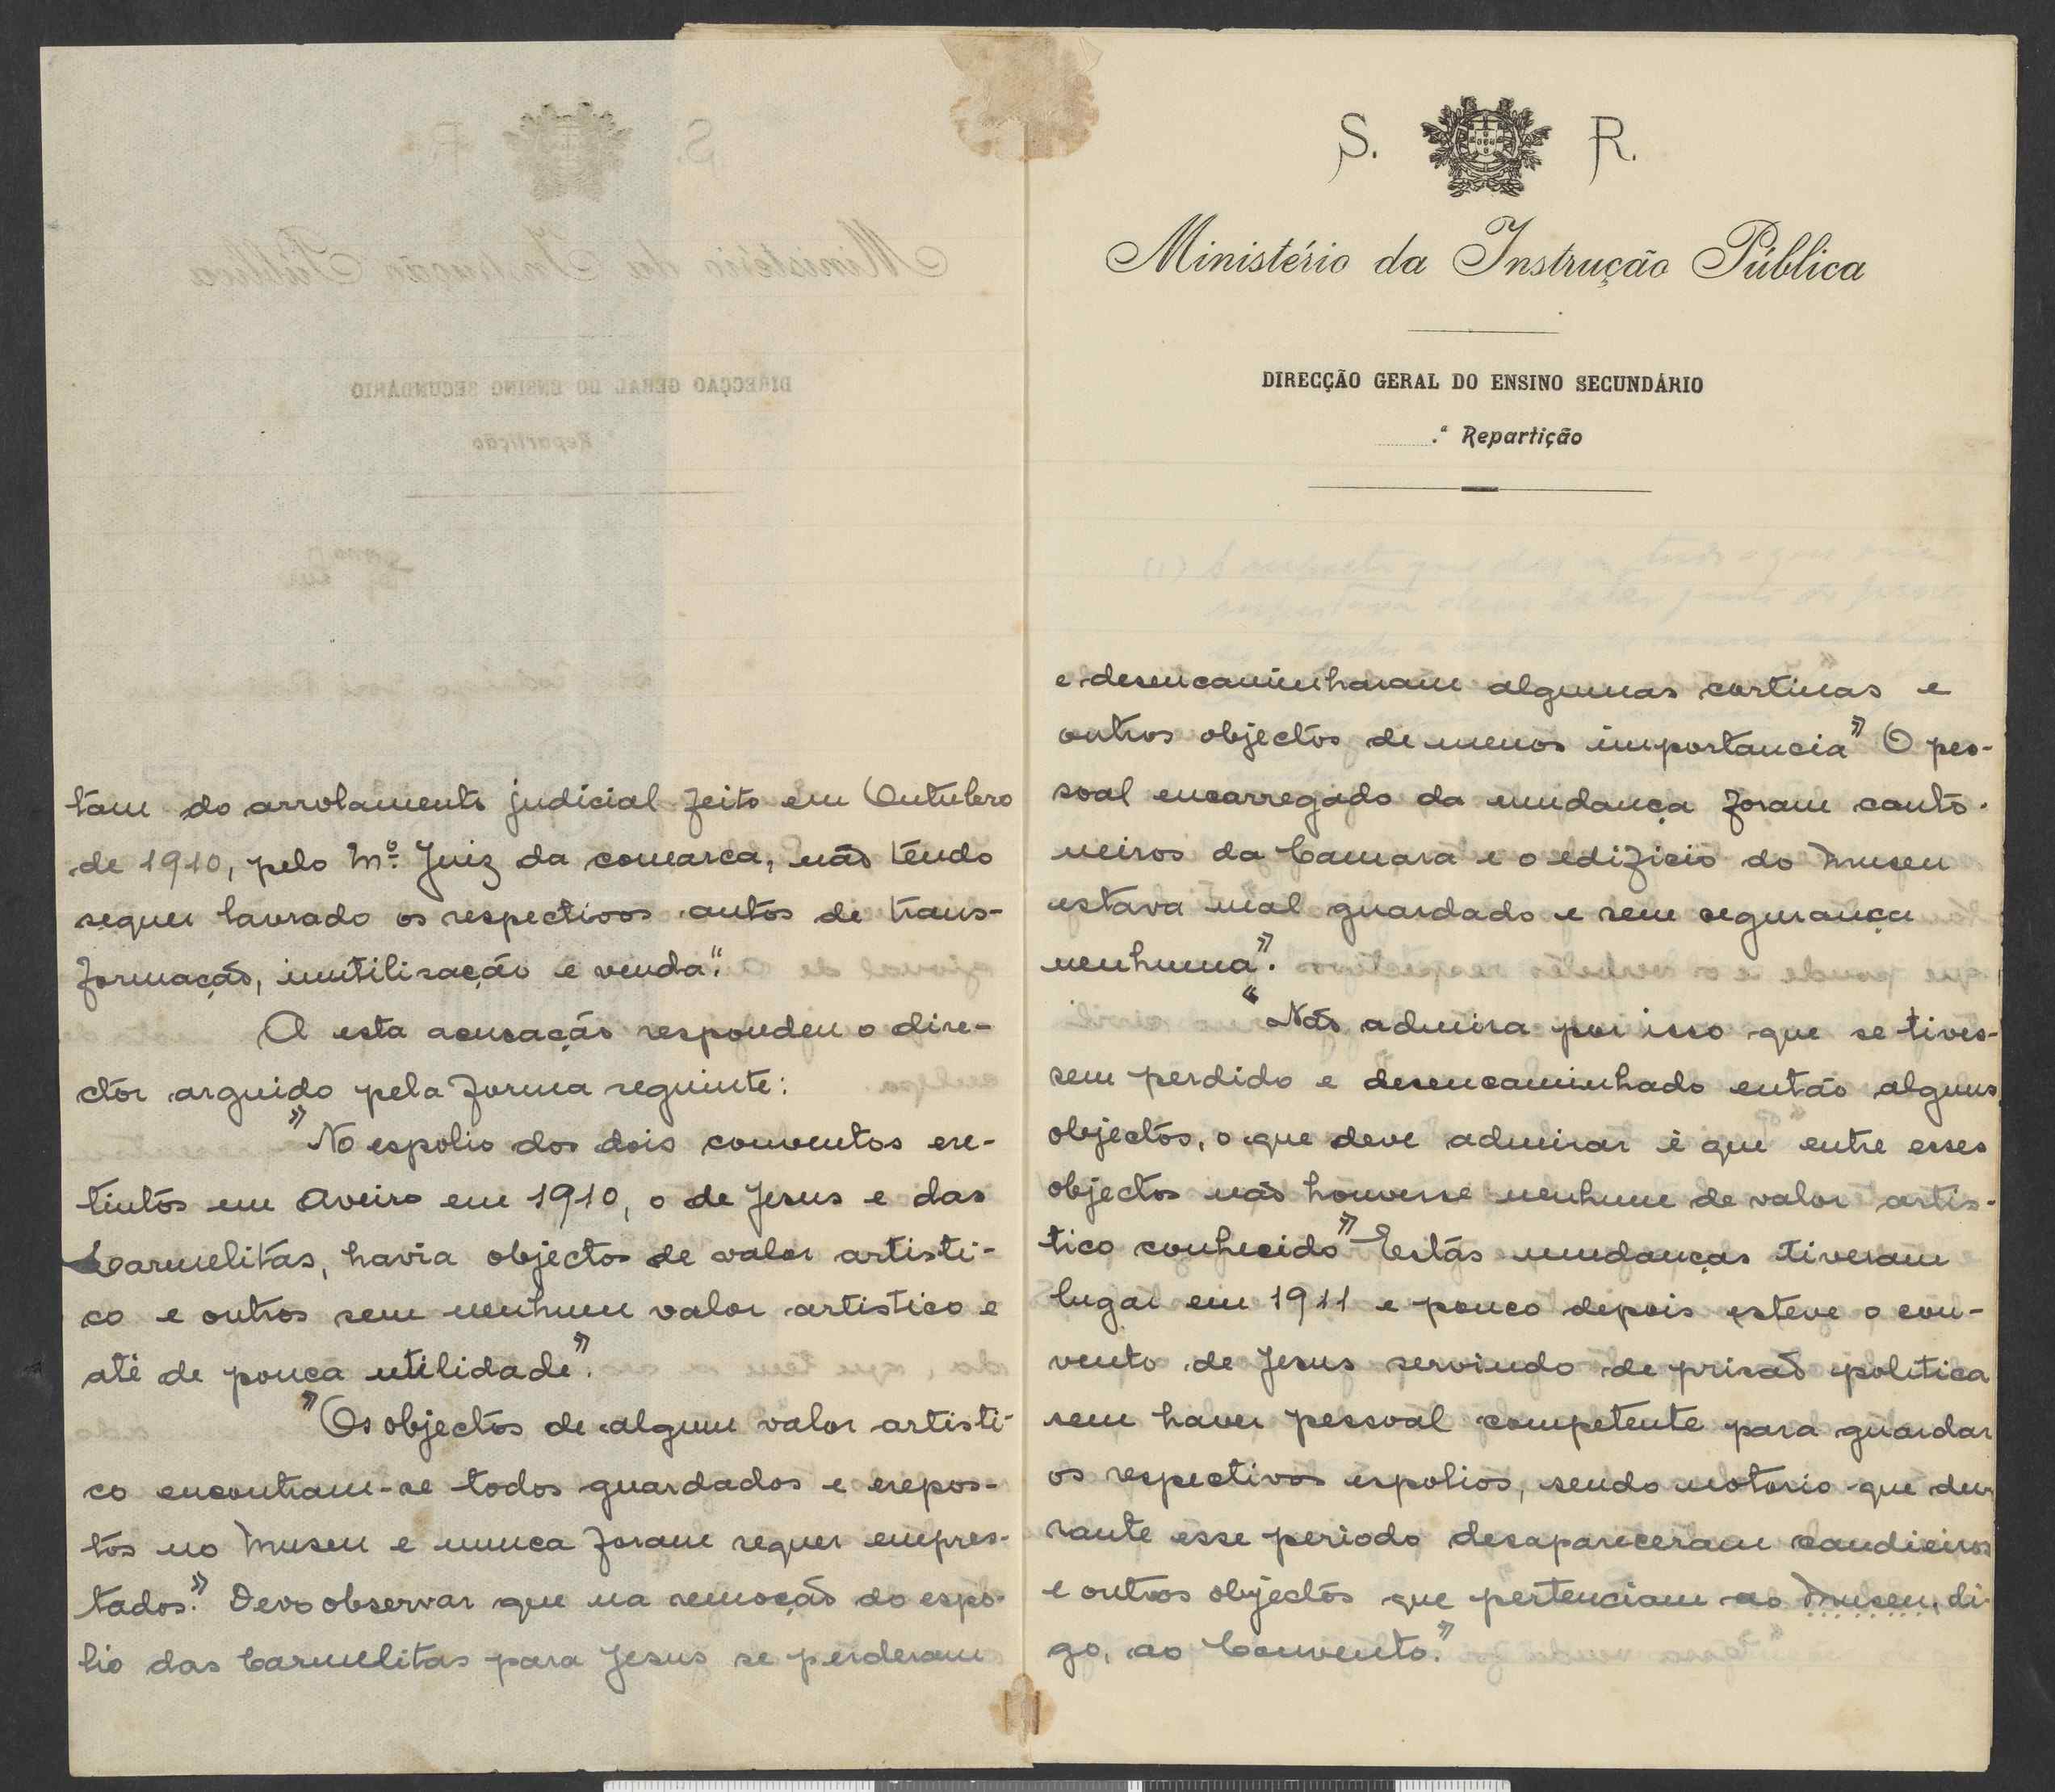 tam do arrolamento judicial feito em Outubro
de 1910, pelo Mº. Juiz da comarca, não tendo
sequer lavrado os respectivos autos de trans-
formação, inutilisação e venda".
A esta acusação respondeu o dire-
ctor arguido pela forma seguinte:
"No espolio dos dois conventos ex-
tintos em Aveiro em 1910, o de Jesus e das
Carmelitas, havia objectos de valor artisti-
co e outros sem nenhum valor artistico e
até de pouca utilidade".
"Os objectos de algum valor artisti-
co encontram-se todos guardados e expos-
tos no Museu e nunca foram sequer empres-
tados." Devo observar que na remoção do espo-
lio das Carmelitas para Jesus se perderam
S. R.
Ministério da Instrução Pública
DIRECÇÃO GERAL DO ENSINO SECUNDÁRIO
.ª Repartição
e desencaminharam algumas cortinas e
outros objectos de menos importancia" O pes-
soal encarregado da mudança foram canto-
neiros da Camara e o edificio do Museu
estava mal guardado e sem segurança
nenhuma".
"Não admira por isso que se tives-
sem perdido e desencaminhado então alguns
objectos, o que deve admirar é que entre esses
objectos não houvesse nenhum de valor artis-
tico conhecido" Estas mudanças tiveram
lugar em 1911 e pouco depois esteve o con-
vento de Jesus servindo de prisão politica
sem haver pessoal competente para guardar
os respectivos espolios, sendo notorio que du-
rante esse periodo desapareceram candieiros
e outros objectos que pertenciam ao Museu, di-
go, ao Convento."